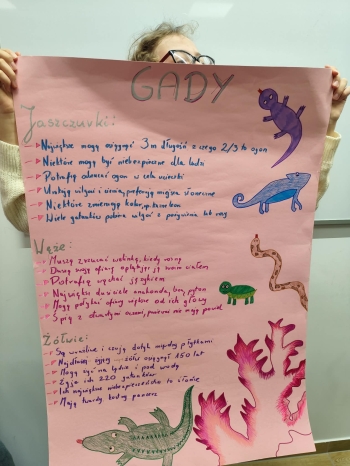 GADY
Jaszczurki:
Największe mogą osiągnąć 3m długości z czego 2/3 to ogon
Niektóre mogą być niebezpieczne dla ludzi
Potrafią odrzucić ogon w celu ucieczki
Unikają wilgoci i cienia, preferują miejsca słoneczne
Niektóre zmieniają kolor, np. kameleon
Wiele gatunków pobiera wilgoć z pożywienia lub rosy
Węże:
Muszą zrzucać wylinkę, kiedy rosną
Duszą swoją ofiarę oplatając ją swoim ciałem
Potrafią węchać językiem
Najwięksi dusiciele anakonda, boa, pyton
Mogą połykać ofiary większe od ich głowy
Śpią z otwartymi oczami, ponieważ nie mają powiek
Żółwie:
Są wrażliwe i czują dotyk między płytkami
Najdłużej żyjące żółwie osiągają 150 lat
Mogą żyć na lądzie i pod wodą
Żyje ich 220 gatunków
Ich największe niebezpieczeństwo to
Mają twardy kostny pancerz